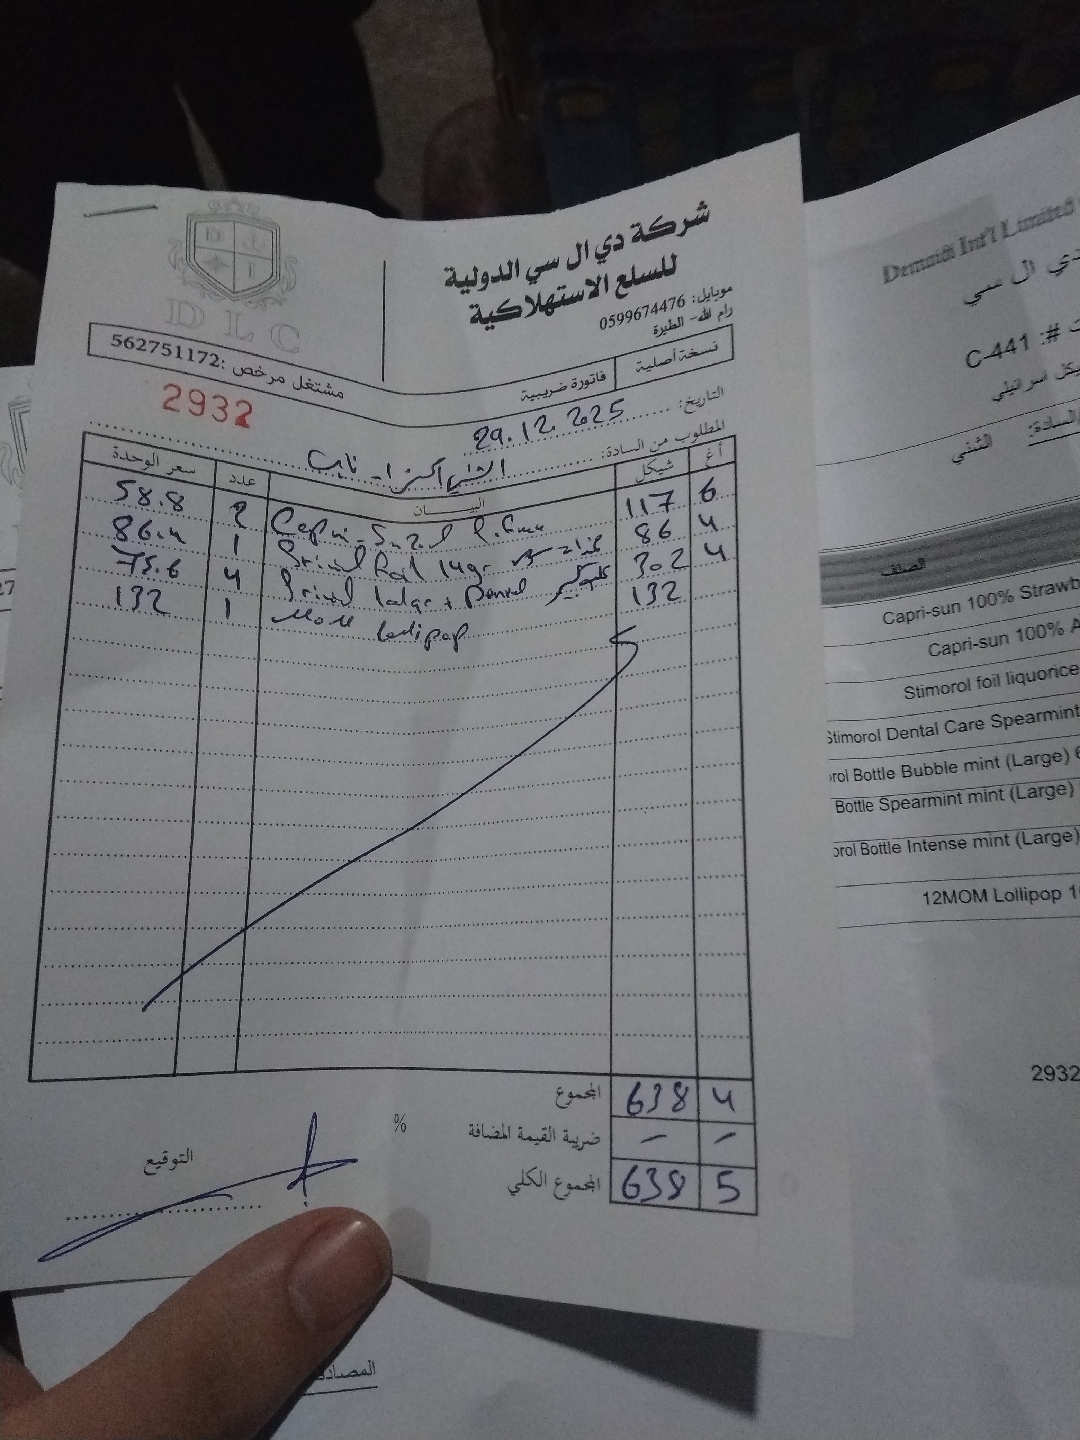 شركة دي ال سي الدولية
للسلع الاستهلاكية
موبايل: 0599674476
رام الله- الطيرة
D L C
مشتغل مرخص: 562751172
فاتورة ضريبية
نسخة أصلية
2932
التاريخ: 29.12.2025
المطلوب من السادة:
أغ شيكل البيـــان عدد سعر الوحدة
6 117 2 58.8
4 86 14gr 1 86.4
4 302 4 75.6
132 lollipop 1 132
المجموع 638 4
ضريبة القيمة المضافة % - -
المجموع الكلي 638 5
التوقيع
Int'l Limited
دي ال سي
C-441 :#
شيكل اسرائيلي
السادة: الشني
الصنف
Capri-sun 100% Strawb
Capri-sun 100% A
Stimorol foil liquorice
Stimorol Dental Care Spearmint
rol Bottle Bubble mint (Large) 6
Bottle Spearmint mint (Large)
orol Bottle Intense mint (Large)
12MOM Lollipop 1
2932
المصاد